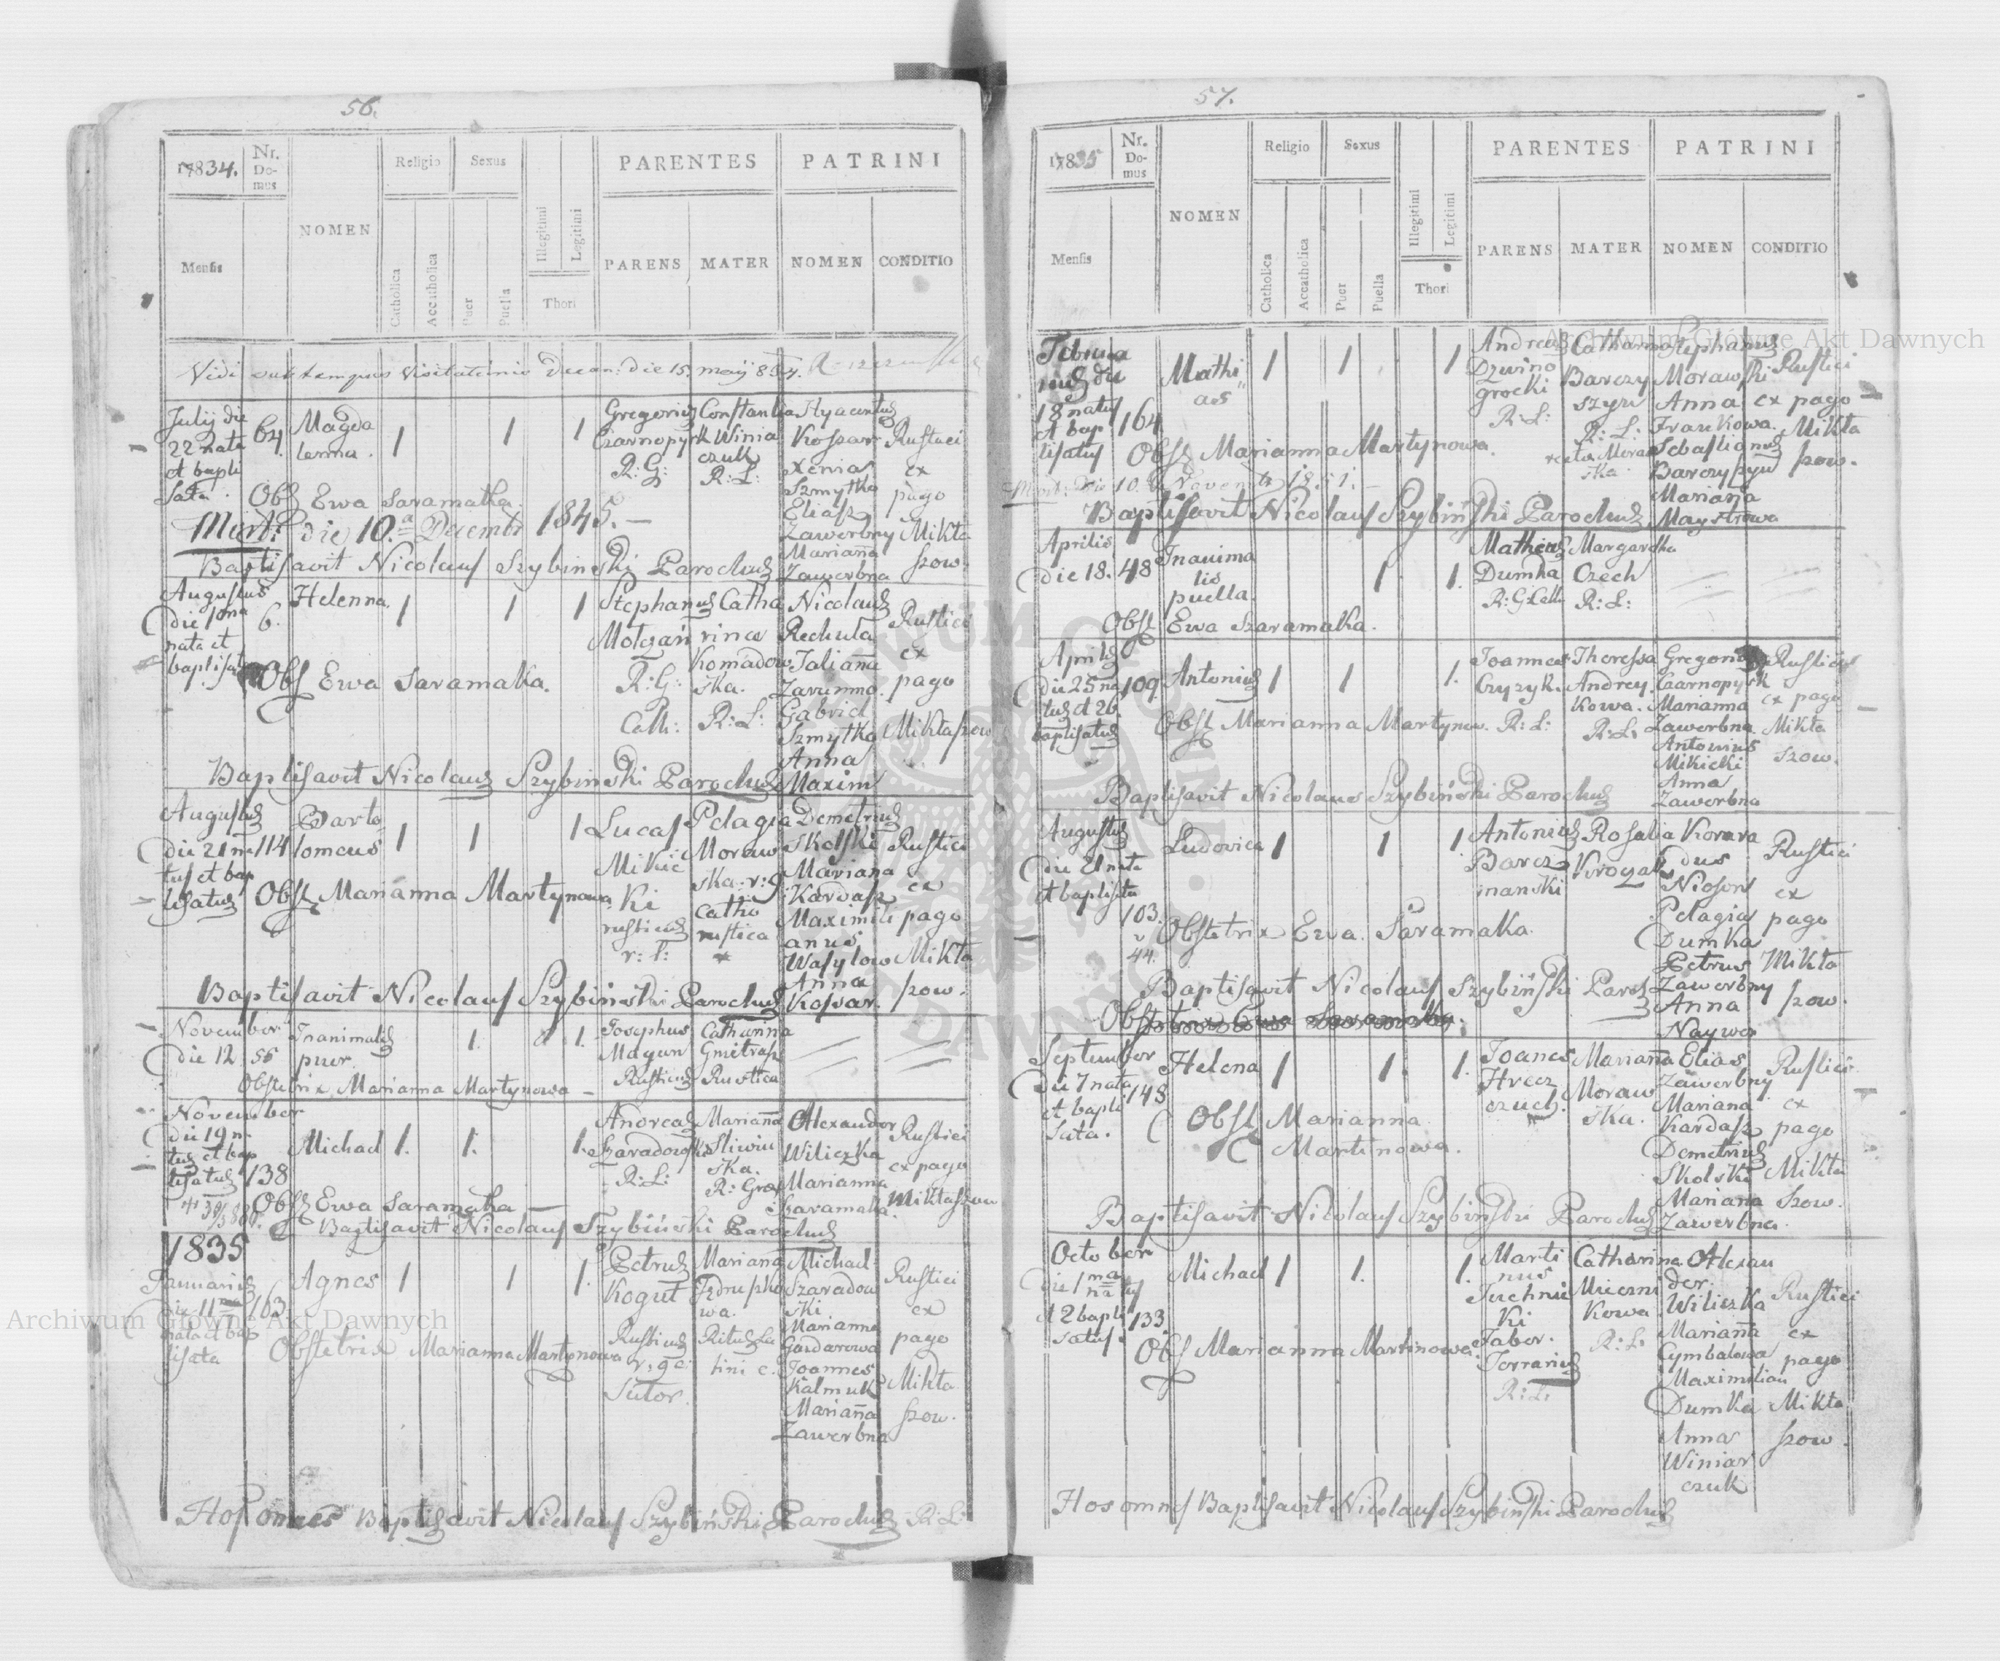 56.
17834.
Nr. Do- mus
NOMEN
Religio
Sexus
PARENTES
PATRINI
Mensis
Catholica
Accatholica
Puer
Puella
Illegitimi
Legitimi
Thori
PARENS
MATER
NOMEN
CONDITIO
Vidi
Visitationis Decan: die 15. maij 834.
Julij die
22 nata
et bapti
sata.
64
Magda
lenna.
1
1
1
Gregorius
Czarnopysk
R: G:
Constantia
Winia
czuk
R: L:
Hyacentus
Kossar
Xenia
Szmytka
Eliasz
Zawerbny
Mariaña
Zawerbna
Rustici
ex
pago
Mikła
szow.
Obst Ewa Saramaka.
Mort: die 10.a Decembr 1845. —
Baptisavit Nicolaus Szybinski Parochus
Augustus
die 1ma
nata et
baptisata
6.
Helenna.
1
1
1
Stephanus
Motczan
R: G:
Cath:
Catha
rina
Komadow
ska.
R: L:
Nicolaus
Rechuła
Taliaña
Zarumno.
Gabriel
Szmytka
Anna
Maxim
Rustici
ex
pago
Mikłaszow
Obst Ewa Saramaka.
Baptisavit Nicolaus Szybinski Parochus
Augustus
die 21 na
tus et bap
tisatus
114
Barto
lomeus
1
1
1
Lucas
Mikic
ki
rusticus
r: l:
Pelagia
Moraw
ska: r: g
catho
rustica
Demetrius
Skolski
Mariana
Kardasz
Maximili
anus
Wasylow
Anna
Kossar.
Rustici
ex
pago
Mikła
szow.
Obst Marianna Martynowa
Baptisavit Nicolaus Szybiński Parochus
November
die 12
56
Inanimatus
puer.
1.
1.
Josephus
Magun
Rusticus
Catharina
Gmitrasz
Rustica
Obstetrix Marianna Martynowa —
November
die 19 n
tus et bap
tisatus
138
Michael
1.
1.
1.
Andreas
Szaradowski
R: L:
Mariaña
Sliwiu
ska.
R: Graec
Alexander
Wiliczka
Marianna
Szaramaka.
Rustici
ex pago
Mikłaszow
Obst Ewa Saramaka —
Baptisavit Nicolaus Szybiński Parochus
1835
Januarius
die 11ma
nata et bap
tisata
163
Agnes
1
1
1.
Petrus
Kogut
Rusticus
r, gc.
Sutor.
Mariana
wa.
Ritus La
tini c.
Michael
Szaradow
ski
Marianna
Gardarowa
Joannes
Kalmuk
Mariaña
Zawerbna
Rustici
ex
pago
Mikła
szow.
Obstetrix Marianna Martynowa
Hos omnes Baptisavit Nicolaus Szybiński Parochus R: L:
57.
17835
Nr. Do- mus
NOMEN
Religio
Sexus
PARENTES
PATRINI
Mensis
Catholica
Accatholica
Puer
Puella
Illegitimi
Legitimi
Thori
PARENS
MATER
NOMEN
CONDITIO
Februa
rius die
18 natus
et bap
tisatus
164
Mathi
as
1
1
1
Andreas
Dzwino
grocki
R: L:
Catharina
Barczy
szyn
R: L:
Stephanus
Morawski
Anna
Frankowa.
Sebastianus
Barczyszyn
Mariaña
Maystrowa
Rustici
ex pago
Mikła
szow.
Obst Marianna Martynowa.
Mort: die 10. Novembr 1851. —
Baptisavit Nicolaus Szybiński Parochus
Aprilis
die 18.
48
Inanima
tis
puella.
1
1.
Mathias
Dumka
R: G: Cath
Margaretha
Czech
R: L:
Obst Ewa Szaramaka.
Aprilis
die 25 na
tus et 26.
baptisatus
109.
Antonius
1
1
1.
Joannes
Czyzyk.
R: L:
Theressa
Andrey
kowa.
R: L.
Gregorius
Czarnopysk
Marianna
Zawerbna
Antonius
Mikicki
Anna
Zawerbna
Rustici
ex pago
Mikła
szow.
Obst Marianna Martynow.
Baptisavit Nicolaus Szybiński Parochus
Augustus
die 21 nata
et baptisata
103.
44.
Ludovica
1
1
1
Antonius
Barcz
manski
Rosalia
Konra
dus
Pelagia
Dumka
Petrus
Zawerbny
Anna
Naywa
Rustici
ex
pago
Mikła
szow.
Obstetrix Ewa Saramaka.
Baptisavit Nicolaus Szybiński Paroch
Obstetrix Ewa Saramaka.
September
die 7 nata
et bapti
sata.
148
Helena
1
1.
1.
Joanes
Hrecz
czuch.
Mariaña
Moraw
ska.
Elias
Zawerbny
Mariana
Kardasz
Demetrius
Skolski
Mariana
Zawerbna.
Rustici
ex
pago
Mikła
szow.
Obst Marianna
Martinowa.
Baptisavit Nicolaus Szybiński Parochus
October
die 1ma na tus
et 2 bapti
satus.
133.
Michael
1
1.
1.
Marti
nus
Juchnic
ki
Faber.
Ferrarius
R: L.
Catharina
Mieczni
kowa
R: L.
Alexan
der.
Wiliczka
Mariaña
Cymbalowa
Maximilian
Dumka
Anna
Winiar
czuk
Rustici
ex
pago
Mikła
szow.
Obst Marianna Martinowa.
Hos omnes Baptisavit Nicolaus Szybiński Parochus
Archiwum Główne Akt Dawnych
Archiwum Główne Akt Dawnych